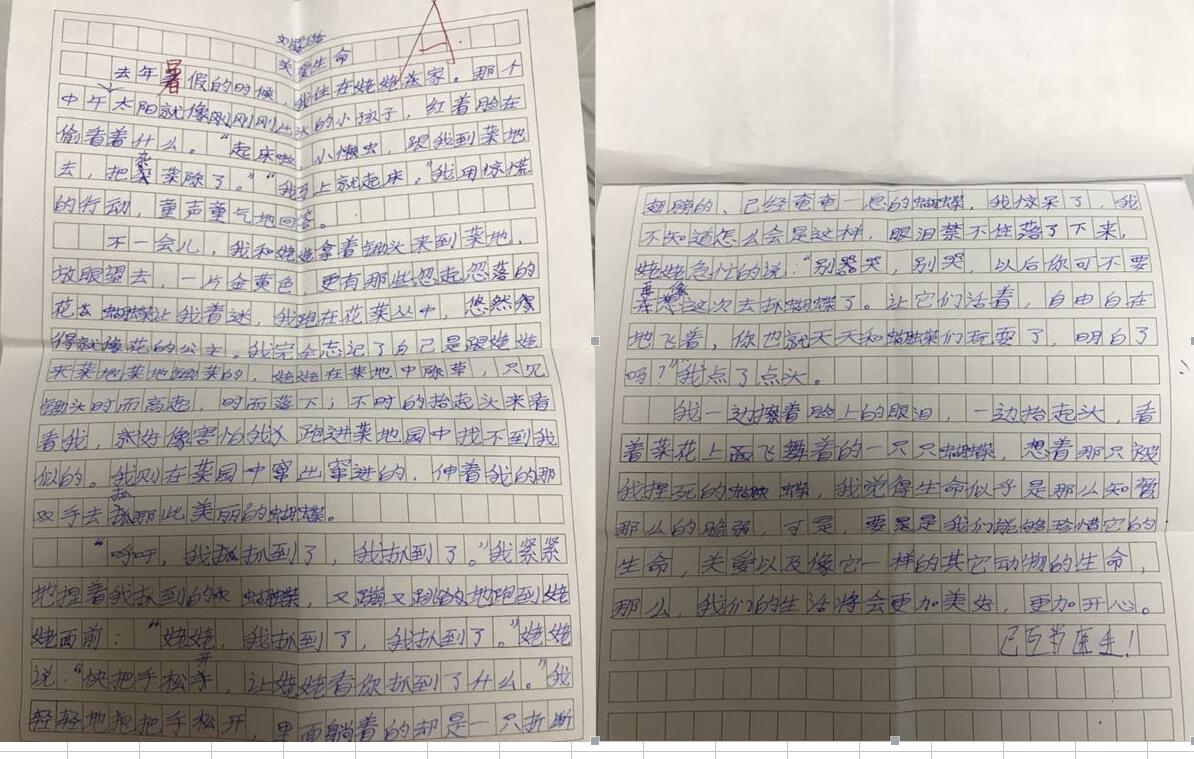 A
关爱生命
去年暑假的时候，我住在姥姥家。那个
中午太阳就像刚刚刚刚出头的小孩子，红着脸在
偷看着什么。“起床啦，小懒虫，跟我到菜地
去，把杂菜除了。”“我马上就起床。”我用惊慌
的行动，童声童气地回答。
不一会儿，我和姥姥拿着锄头来到菜地，
放眼望去，一片金黄色，更有那些忽起忽落的
花去蝴蝶让我着迷，我跑在花菜丛中，悠然得
得就像花的公主。我完全忘记了自己是跟姥姥
来菜地菜地锄菜的，姥姥在菜地中除草，只见
锄头时而高起，时而落下；不时的抬起头来看
看我，好像害怕我跑进菜地园中找不到我
似的。我则在菜园中窜出窜进的，伸着我的那
双手去抓那些美丽的蝴蝶。
“呵呵，我扒到了，我扒到了。”我紧紧
地捏着我扒到的蝴蝶，又蹦又跳的地跑到姥
姥面前：“姥姥，我扒到了，我扒到了。”姥姥
说：“快把手松开，让姥姥看你扒到了什么。”我
轻轻地把把手松开，里面躺着的却是一只折断
翅膀的、已经奄奄一息的蝴蝶，我惊呆了，我
不知道怎么会是这样，眼泪禁不住落了下来，
姥姥急忙的说：“别哭，别哭，以后你可不要
再像这次去扒蝴蝶了。让它们活着，自由自在
地飞着，你也就天天和蝴蝶们玩耍了，明白了
吗？”我点了点头。
我一边擦着脸上的眼泪，一边抬起头，看
着菜花上面飞舞着的一只只蝴蝶，想着那只被
我捏死的蝴蝶，我觉得生命似乎是那么短暂
那么的脆弱，可是，要是我们能够珍惜它的
生命，关爱以及像它一样的其它动物的生命，
那么，我们的生活将会更加美好，更加开心。